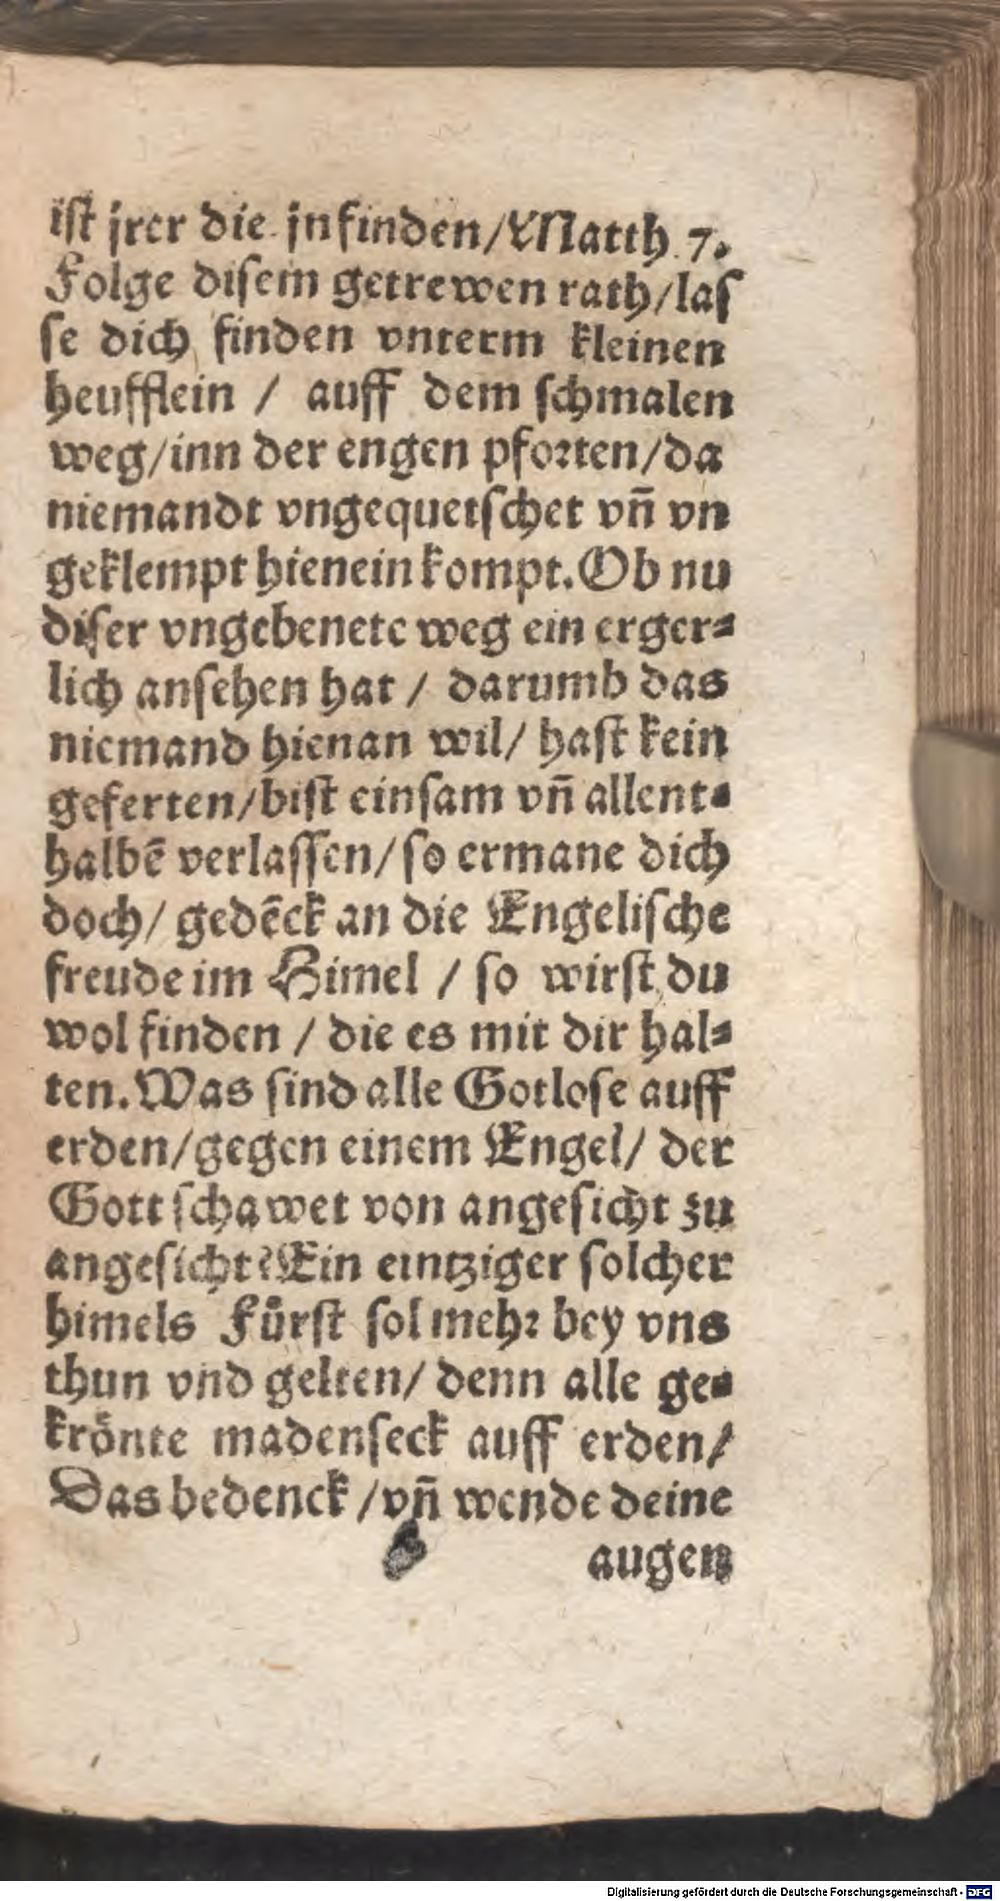 ist jrer die jn finden/ Matth. 7.
Folge disem getrewen rath/las
se dich finden vnterm kleinen
heufflein / auff dem schmalen
weg/inn der engen pforten/da
niemandt vngequetschet vn̄ vn
geklempt hienein kompt. Ob nu
diser vngebenete weg ein erger⸗
lich ansehen hat / darumb das
niemand hienan wil/ hast kein
geferten/bist einsam vn̄ allent⸗
halbē verlassen/so ermane dich
doch/ gedēck an die Engelische
freude im Himel / so wirst du
wol finden / die es mit dir hal⸗
ten. Was sind alle Gotlose auff
erden/gegen einem Engel/ der
Gott schawet von angesicht zu
angesicht? Ein eintziger solcher
himels Fuͤrst sol mehr bey vns
thun vnd gelten/ denn alle ge⸗
kroͤnte madenseck auff erden/
Das bedenck /vn̄ wende deine
augen
Digitalisierung gefördert durch die Deutsche Forschungsgemeinschaft - DFG